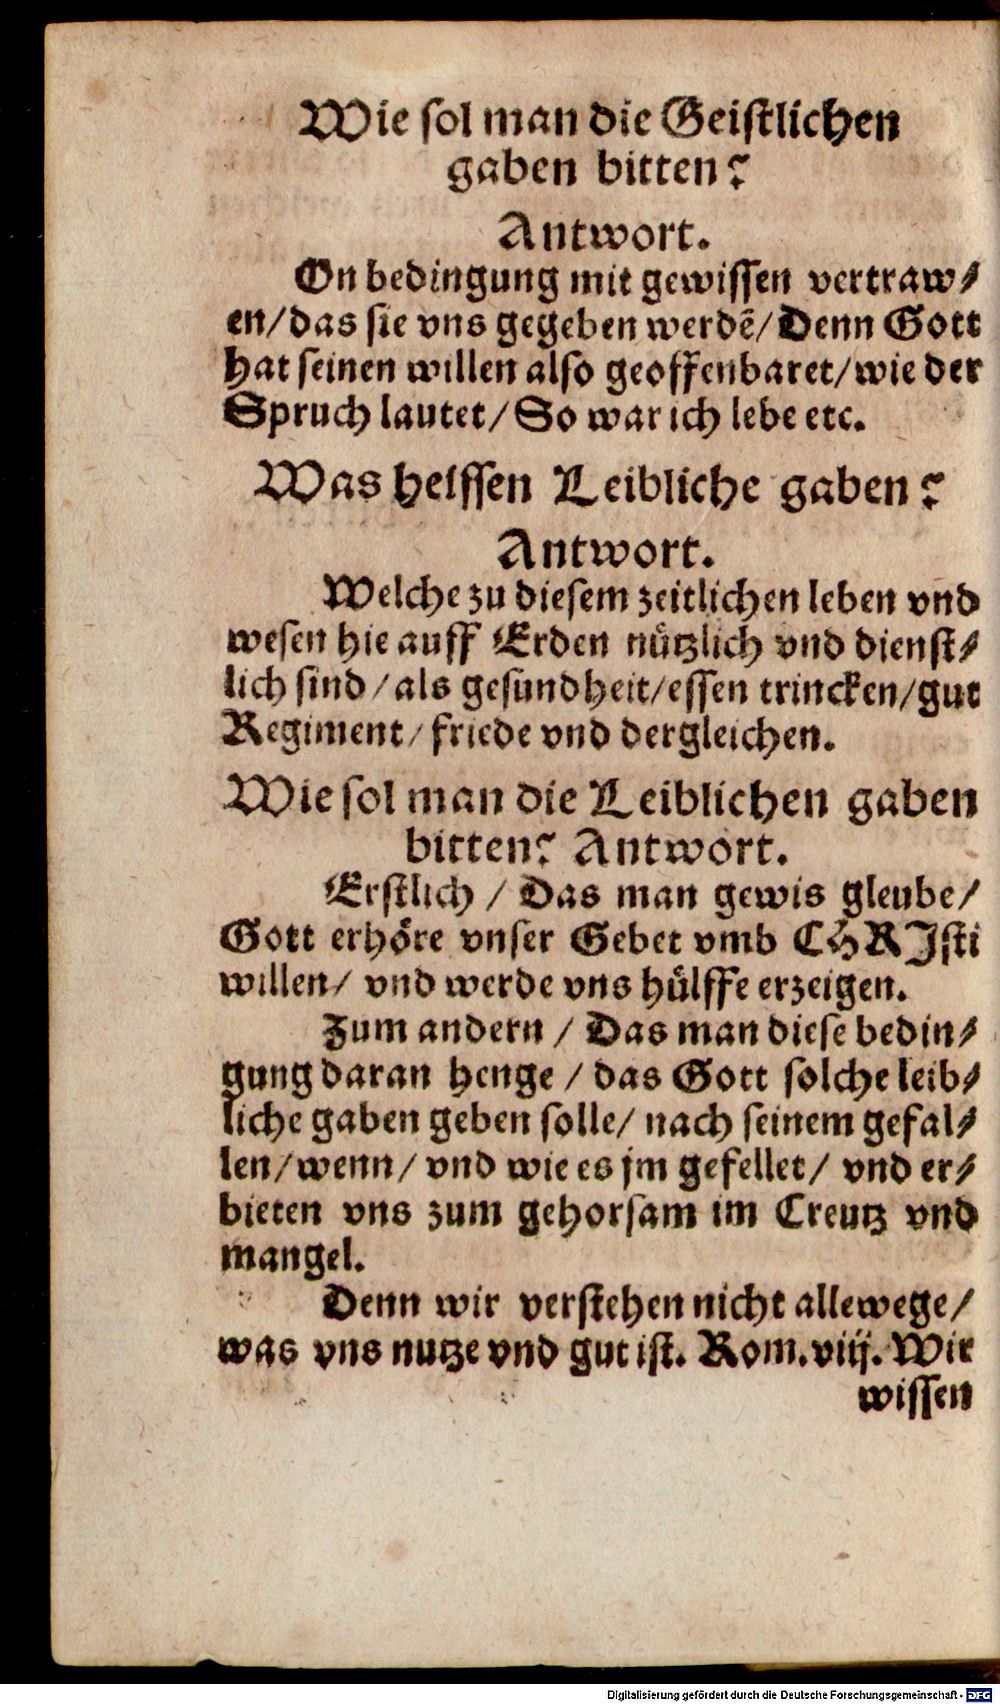 Wie sol man die Geistlichen
gaben bitten?
Antwort.
On bedingung mit gewissen vertraw⸗
en/das sie vns gegeben werdē/Denn Gott
hat seinen willen also geoffenbaret/wie der
Spruch lautet/So war ich lebe etc.
Was heissen Leibliche gaben?
Antwort.
Welche zu diesem zeitlichen leben vnd
wesen hie auff Erden nützlich vnd dienst⸗
lich sind/als gesundheit/essen trincken/gut
Regiment/friede vnd dergleichen.
Wie sol man die Leiblichen gaben
bitten? Antwort.
Erstlich / Das man gewis gleube/
Gott erhöre vnser Gebet vmb CHRJsti
willen/ vnd werde vns hülffe erzeigen.
Zum andern / Das man diese bedin⸗
gung daran henge / das Gott solche leib⸗
liche gaben geben solle/ nach seinem gefal⸗
len/wenn/ vnd wie es jm gefellet/ vnd er⸗
bieten vns zum gehorsam im Creutz vnd
mangel.
Denn wir verstehen nicht allewege/
was vns nutze vnd gut ist. Rom.viij. Wir
wissen
Digitalisierung gefördert durch die Deutsche Forschungsgemeinschaft - DFG